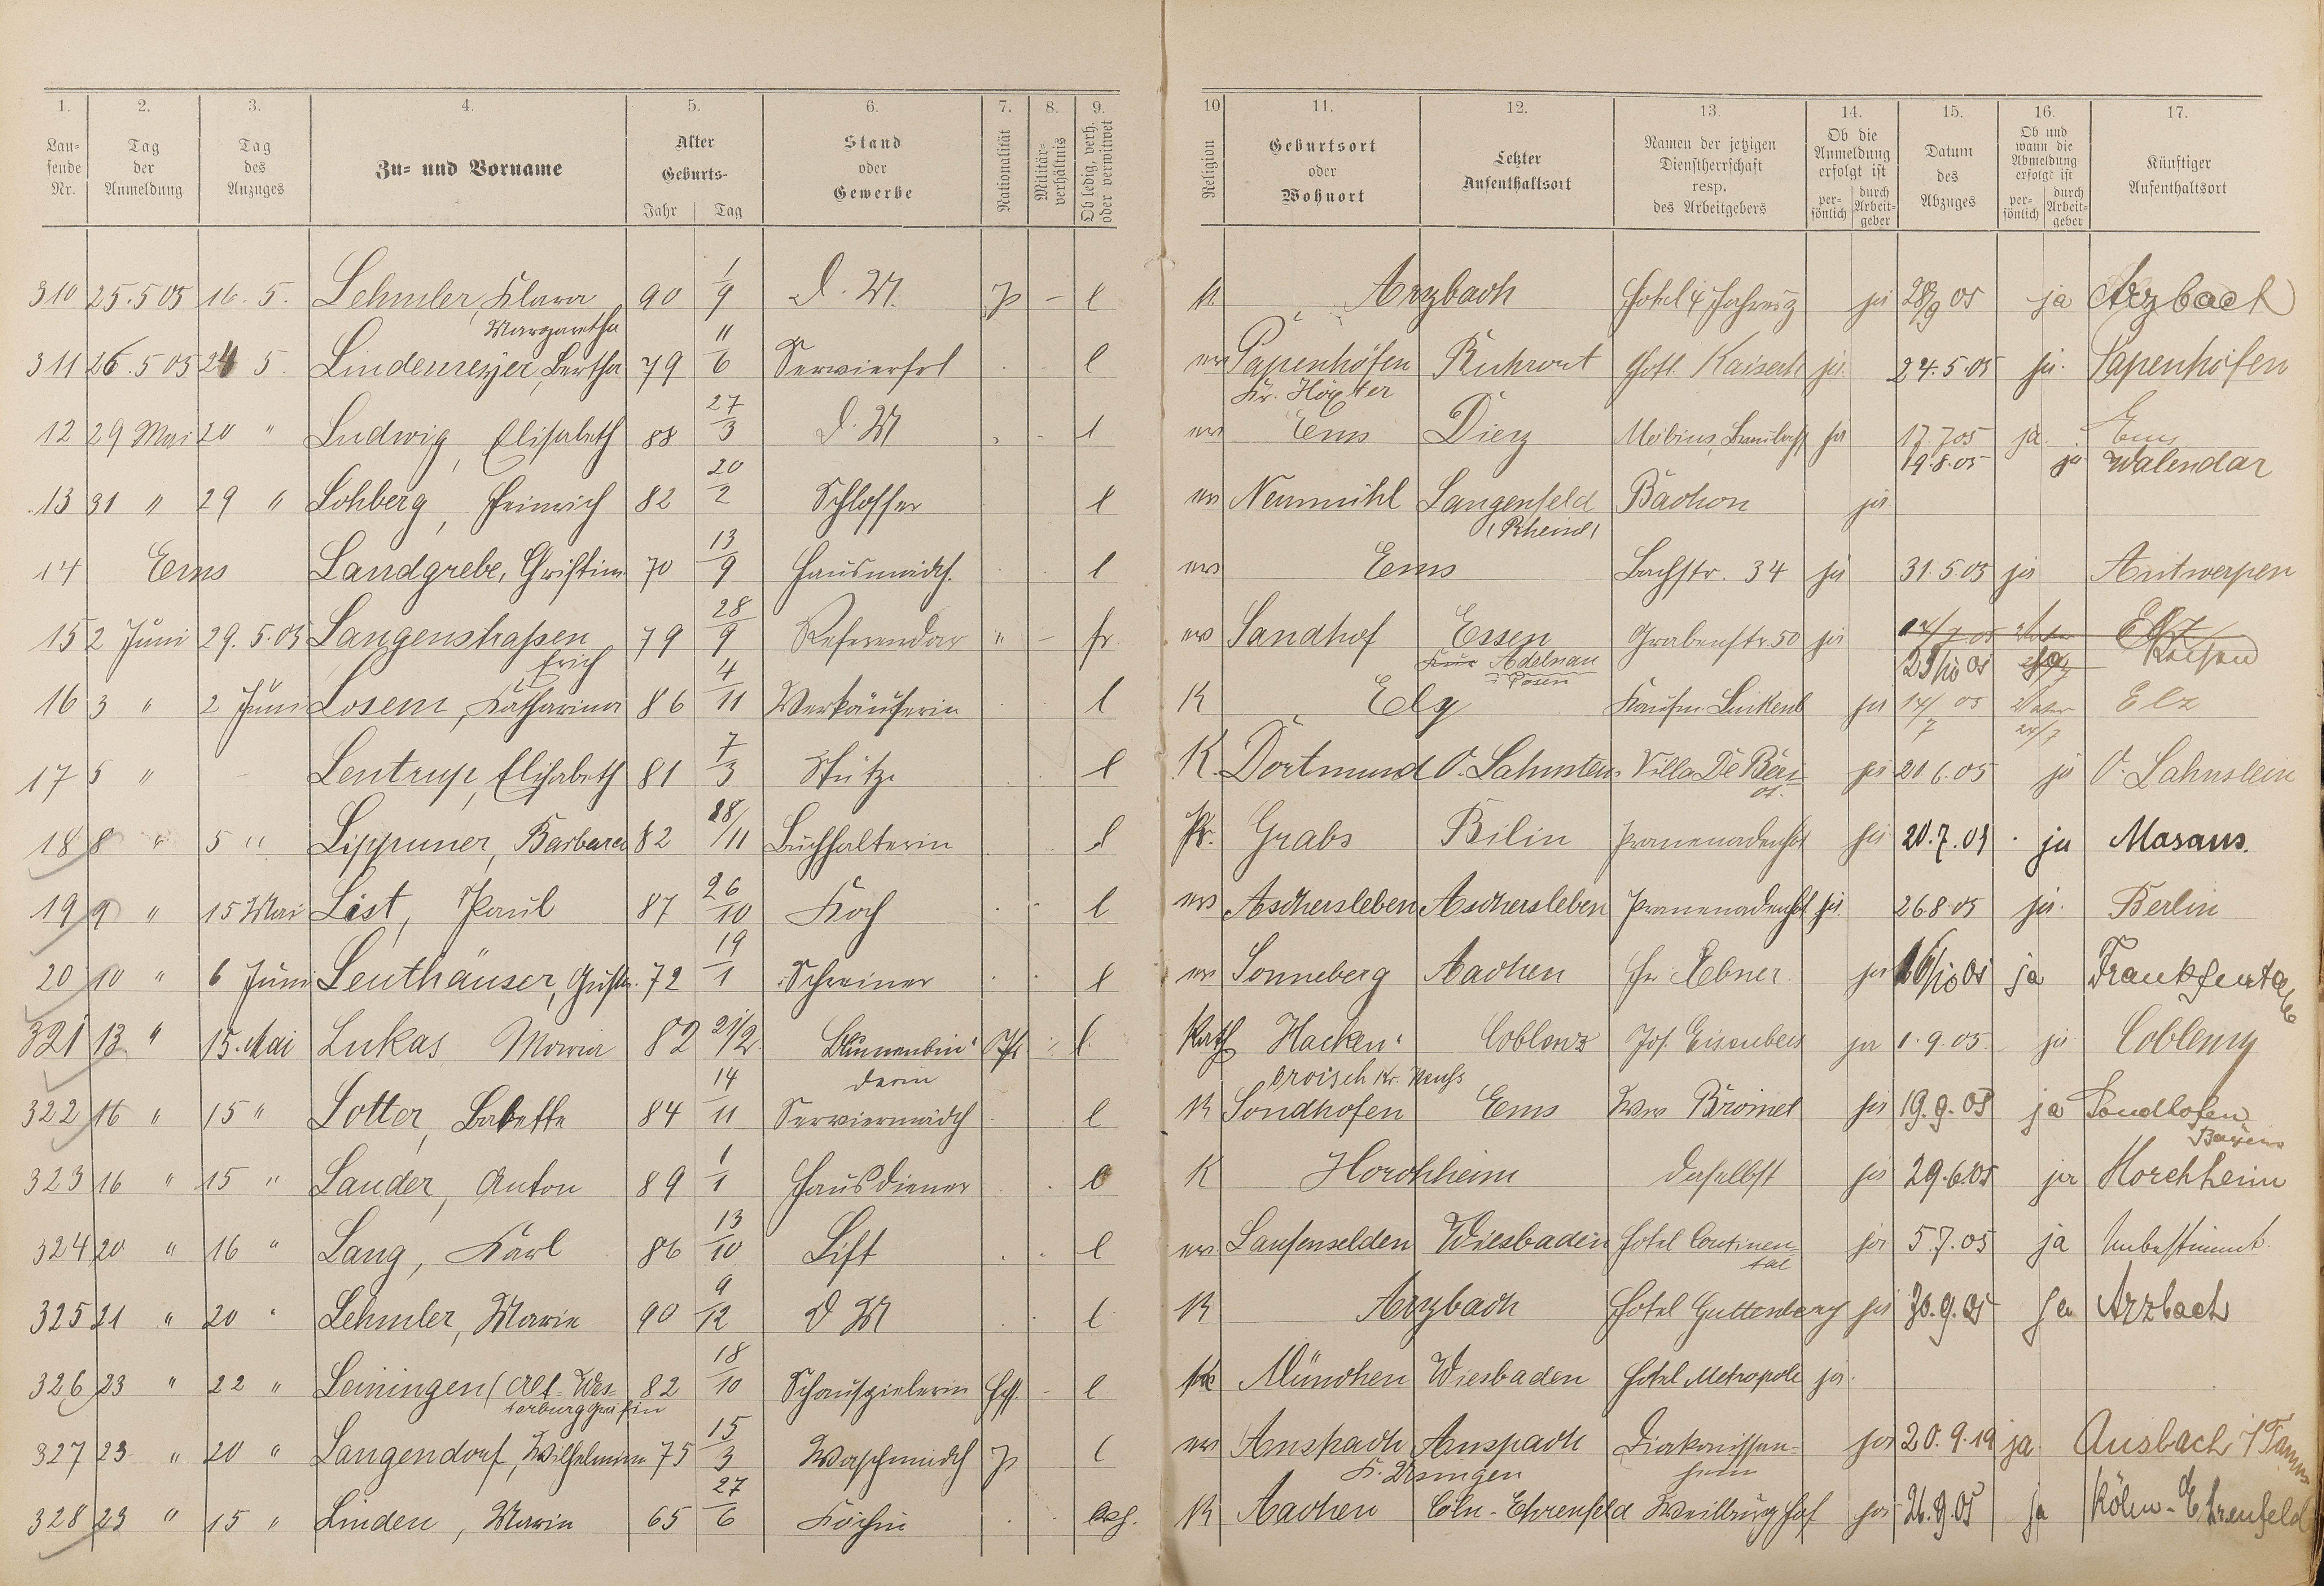 1. 2. 3. 4. 5. 6. 7. 8. 9. 10 11. 12. 13. 14. 15. 16. 17.
Lau-
fende
Nr.
Tag
der
Anmeldung
Tag
des
Anzuges
Zu- und Vorname
Alter
Geburts-
Jahr Tag
Stand
oder
Gewerbe
Nationalität
Militär-
verhältnis
Ob ledig, verh.
oder verwitwet
Religion
Geburtsort
oder
Wohnort
Letzter
Aufenthaltsort
Namen der jetzigen
Dienstherrschaft
resp.
des Arbeitgebers
Ob die
Anmeldung
erfolgt ist
per-
sönlich
durch
Arbeit-
geber
Datum
des
Abzuges
Ob und
wann die
Abmeldung
erfolgt ist
per-
sönlich
durch
Arbeit-
geber
Künftiger
Aufenthaltsort
310 25.5 05 16. 5. Lehmler, Klara Margaretha 90 1/9 D. M. P – l K. Arzbach Hotel 4 Jahresz ja 28/9 05 ja Arzbach
311 26.5 05 24 5. Lindemeyer, Bertha 79 11/6 Servierfrl l ev Papenhöfen Kr. Höxter Ruhrort Hotl. ja 24.5.05 ja. Papenhöfen
12 29 Mai 20 " Ludwig, Elisabeth 88 27/3 D. M l ev Ems Diez Möbius, ja 17.7 05 ja. Ems
19.8.05 ja Valendar
13 31 " 29 " Lohberg, Heinrich 82 20/2 Schlosser l ev Neumühl Langenfeld (Rheinl) Bachon ja
14 Ems Landgrebe, Christine 70 13/9 Hausmädch. l ev Ems Bachstr. 34 ja 31.5.05 ja Antwerpen
15 2 Juni 29.5.05 Langenstraßen Erich 79 28/9 Referendar " – fr. ev Sandhof Essen Adelnau Posen Grabenstr. 50 ja 14/7 05 Elz
23/10 05
16 3 " 2 Juni Losem, Katharina 86 4/11 Verkäuferin l K Elz Kaufm. Linkenb ja 14/7 05 24/7 Elz
17 5 " Lentrup, Elisabeth 81 7/3 Stütze l K. Dortmund O. Lahnstein Villa De ja 20.6.05 ja O. Lahnstein
18 8 " 5 " Lippuner, Barbara 82 28/11 Buchhalterin l Pr. Grabs Bilin Promenadenhot ja 20.7.05 ja Masans.
19 9 " 15 Mai List, Paul 87 26/10 Koch l ev Aschersleben Aschersleben Promenadenhot ja 26.8.05 ja. Berlin
20 10 " 6 Juni Leuthäuser, Gustav. 72 19/1 Schreiner l ev Sonneberg Aachen Fr. Ebner ja 16/10 05 ja Frankfurt a/M
321 13 " 15. Mai Lukas Maria 82 21/2 Blumenbin- derin Pr l. Kath Hacken- broich Kr. Neuss Coblenz Jos. Eisenbeis ja 1.9.05. ja Coblenz
322 16 " 15 " Lotter, Babette 84 14/11 Serviermädch l K Sondhofen Ems Wwe ja 19.9.05 ja Sondhofen Bayern
323 16 " 15 " Lauder, Anton 89 1/1 Hausdiener l K Horchheim daselbst ja 29.6.05 ja Horchheim
324 20 " 16 " Lang, Karl 86 13/10 Lift l ev. Laufenselden Wiesbaden Hotel Continen- tal ja 5.7.05 ja Unbestimmt.
325 21 " 20 " Lehmler, Marie 90 9/12 D M l K Arzbach Hotel Guttenberg ja 30.9.05 ja Arzbach
326 23 " 22 " Leiningen (Alt-Wes- terburg Gräfin 82 18/10 Schauspielerin – l München Wiesbaden Hotel Metropole ja.
327 23 " 20 " Langendorf, Wilhelmine 75 15/3 Waschmädch P l ev Anspach K. Usingen Anspach Diakonissen- heim ja 20.9.19 ja Ansbach i/Taunus
328 23 " 15 " Linden, Marie 65 27/6 Köchin K Aachen Cöln-Ehrenfeld Weilburg Hof ja 26.9.05 ja Köln-Ehrenfeld